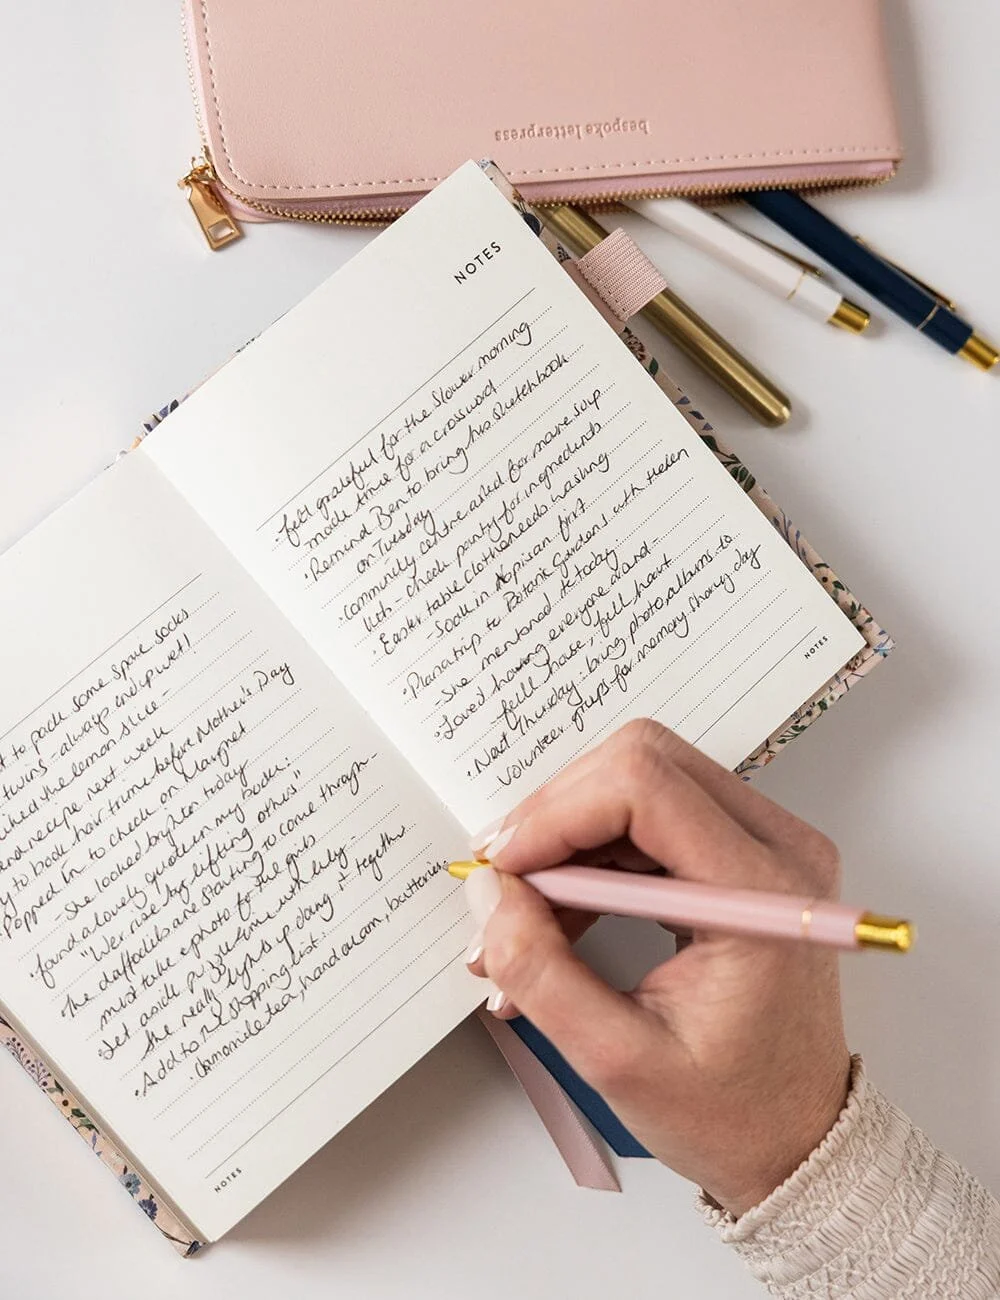 bespoke letterpress
t to pack some spare socks
twins - always end up wet!
liked the lemon slice -
end recipe next week
y to book hair trim before Mother's Day
Popped in to check on Margret
- She looked brighter today
found a lovely quote in my book:
"We rise by lifting others"
The daffodils are starting to come through -
must take a photo for the girls
Set aside puzzle time with Lily -
She really lights up doing it together
Add to the shopping list:
camomile tea, hand cream, batteries.
NOTES
NOTES
felt grateful for the slower morning
made time for a crossword
Remind Ben to bring his sketchbook
on Tuesday
Community centre asked for more soup
- check pantry for ingredients
Easter table cloth needs washing
- Soak in Napisan first
Plan a trip to Botanic Gardens with Helen
- She mentioned it today.
Loved having everyone around -
- full house, full heart
Next Thursday: bring photo albums to
volunteer group for memory sharing day
NOTES